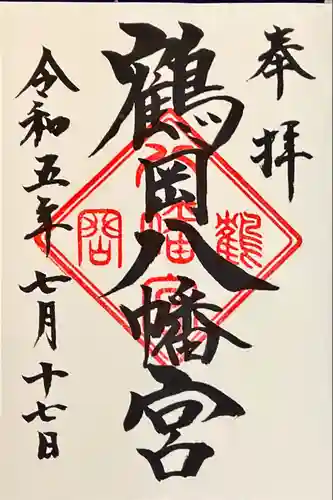 奉拝
鶴岡八幡宮
令和五年七月十七日
鶴
八幡宮
岡